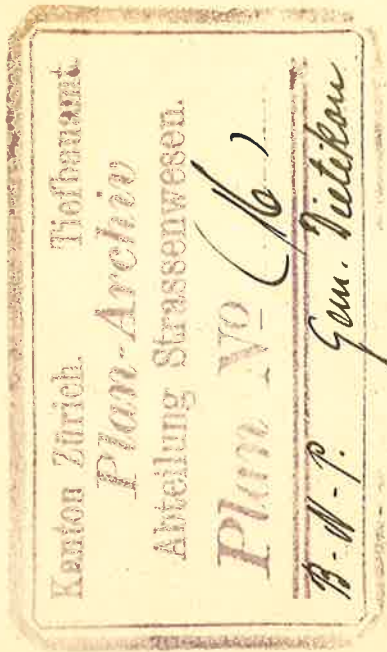 Kanton Zürich. Tiefbauamt.
Plan-Archiv
Abteilung Strassenwesen.
Plan No (16)
B-N-P. Gem. Dietikon